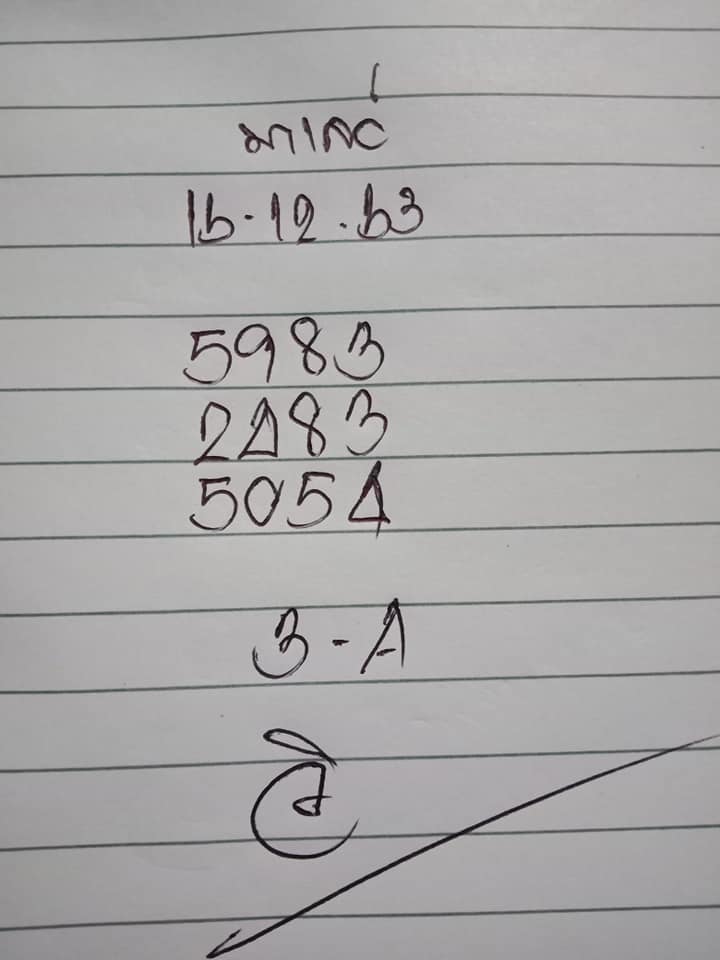 มาเลย์
16-12.63
5983
2483
5054
3-4